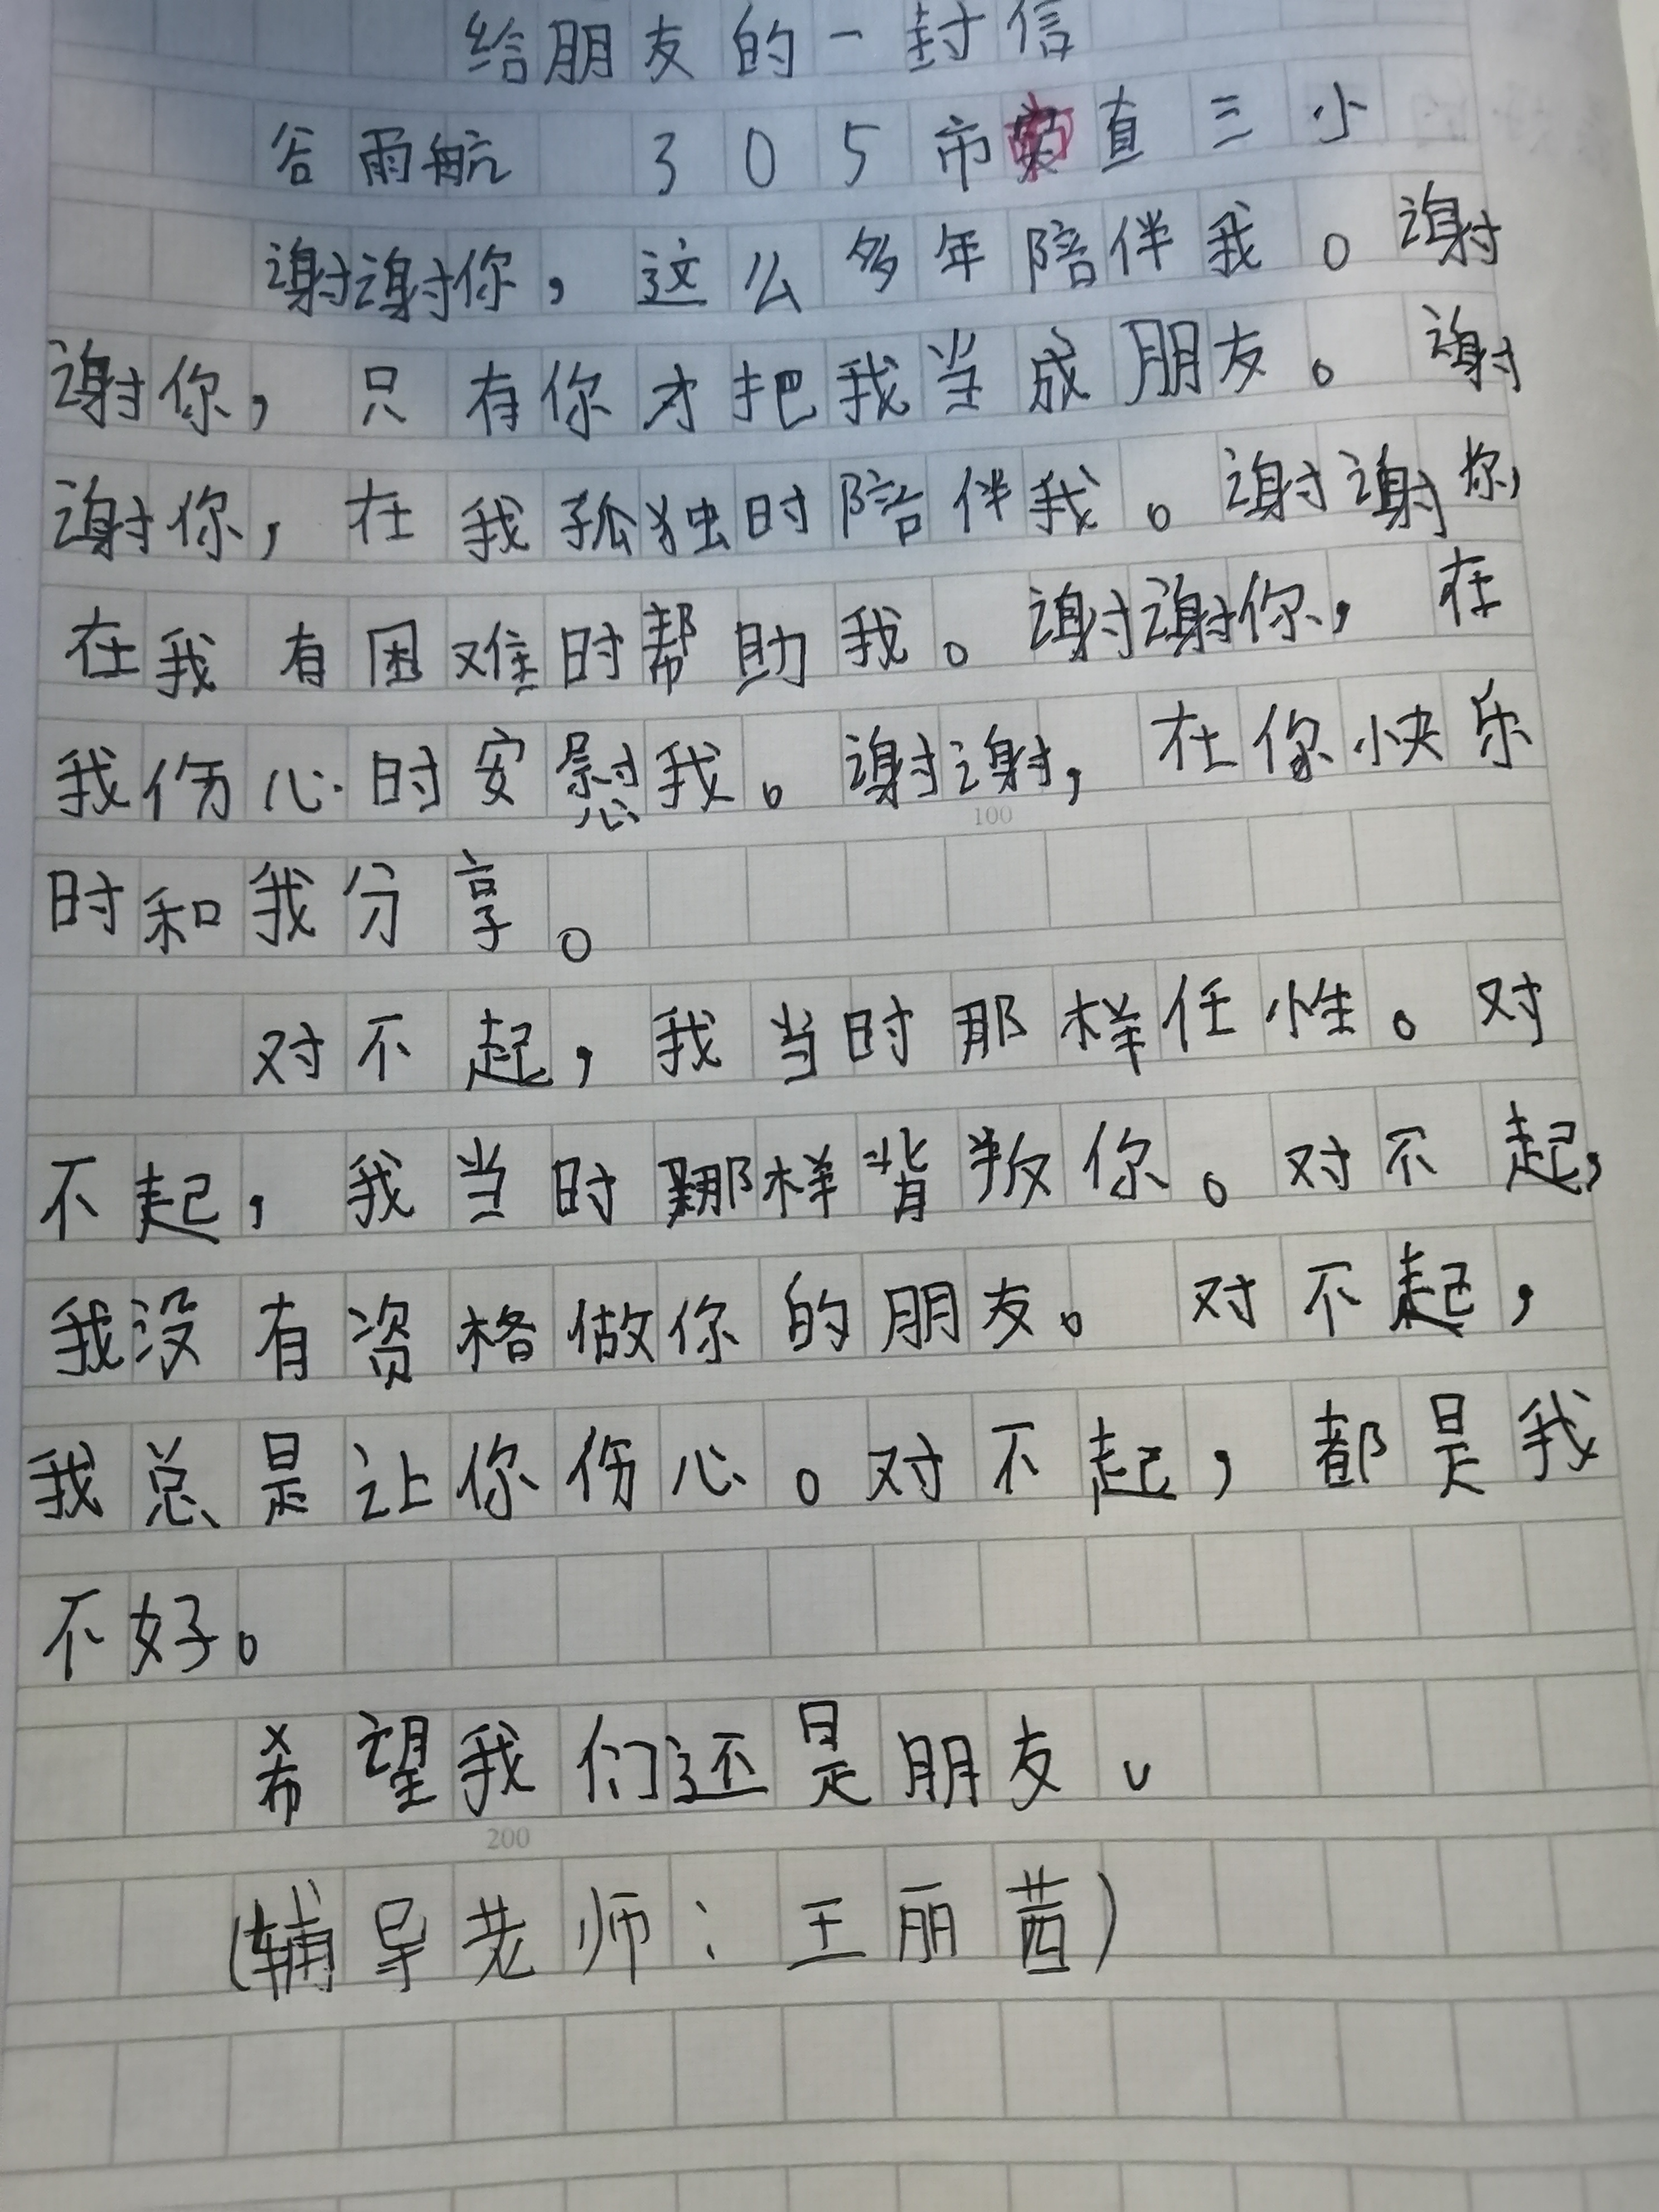 给朋友的一封信
谷雨航 305市直三小
谢谢你，这么多年陪伴我。谢
谢你，只有你才把我当成朋友。谢
谢你，在我孤独时陪伴我。谢谢你，
在我有困难时帮助我。谢谢你，在
我伤心时安慰我。谢谢，在你快乐
100
时和我分享。
对不起，我当时那样任性。对
不起，我当时那样背叛你。对不起，
我没有资格做你的朋友。对不起，
我总是让你伤心。对不起，都是我
不好。
希望我们还是朋友。
200
(辅导老师：王丽茜)